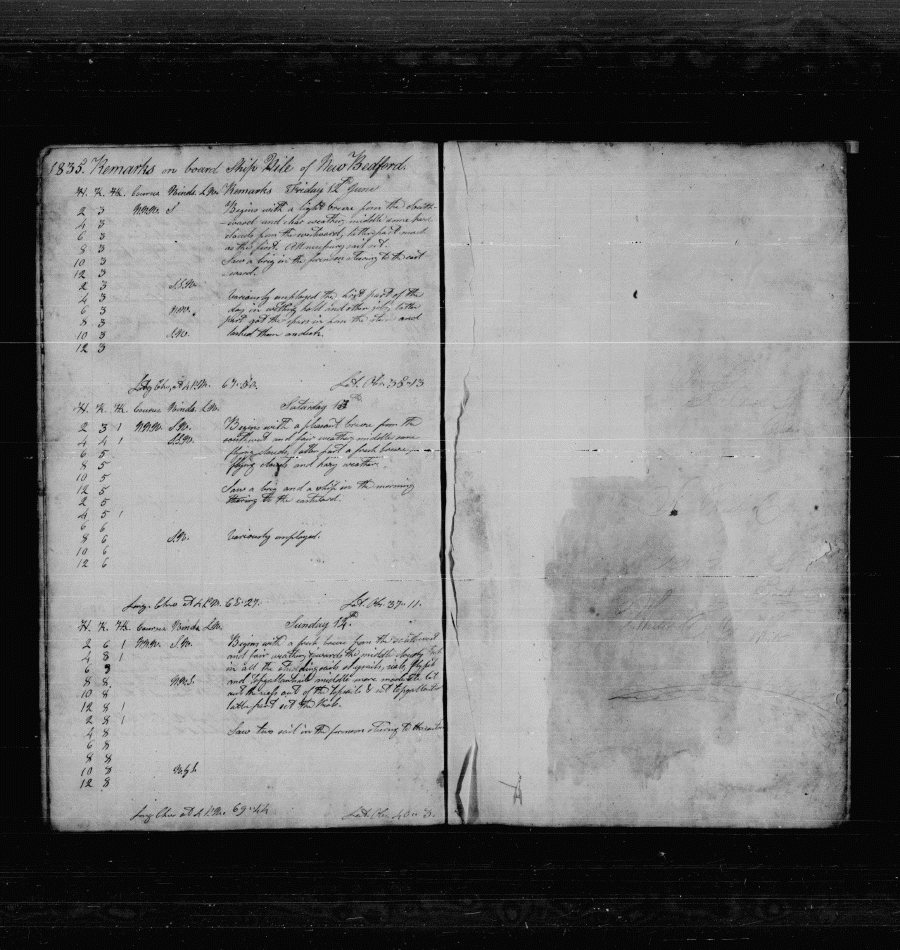 1835. Remarks on board Ship Pile of New Bedford.
H. K. Hk. Courses Winds L.W. Remarks Friday 12th June
2 3 NNW. S Begins with a light breeze from the South-
4 3 -ward and clear weather, middle some
6 3 clouds from the westward, latter part much
8 3 as the first. All necessary sail set.
10 3 Saw a brig in the forenoon steering to the east
12 3 ward.
2 3 S.S.W.
4 3 Variously employed the first part of the
6 3 day in and other jobs latter
8 3 part got the spars in from the and
10 3 S.W. lashed them on deck.
12 3
Lat. Ob. 35-13
H. K. Hk. Courses Winds L.W. Saturday 13th
2 3 1 NNW. S.W. Begins with a pleasant breeze from the
4 4 1 S.S.W. southward and fair weather, middle some
6 5 flying clouds, latter part a fresh breeze,
8 5 flying clouds and hazy weather.
10 5
12 5 Saw a brig and a ship in the morning
2 5 steering to the eastward.
4 5 1
6 6
8 6 S.W. Variously employed.
10 6
12 6
Long. Chro. at 4 P.M. 68-27. Lat. Ob. 37-11.
H. K. Hk. Courses Winds L.W. Sunday 14th
2 6 1 NNW. S.W. Begins with a fresh breeze from the southward
4 8 1 and fair weather, towards the middle cloudy
6 9 in all the studding sails staysails,
8 8 and topgallantsails middle more moderate let
10 8 out the reefs out of the topsails & set topgallant
12 8 1 latter part set the
2 8 1
4 8 Saw two sail in the forenoon steering to the
6 8
8 8
10 8
12 8
Long Chro at 4 P.M. 69-44 Lat. Ob. 40-3.